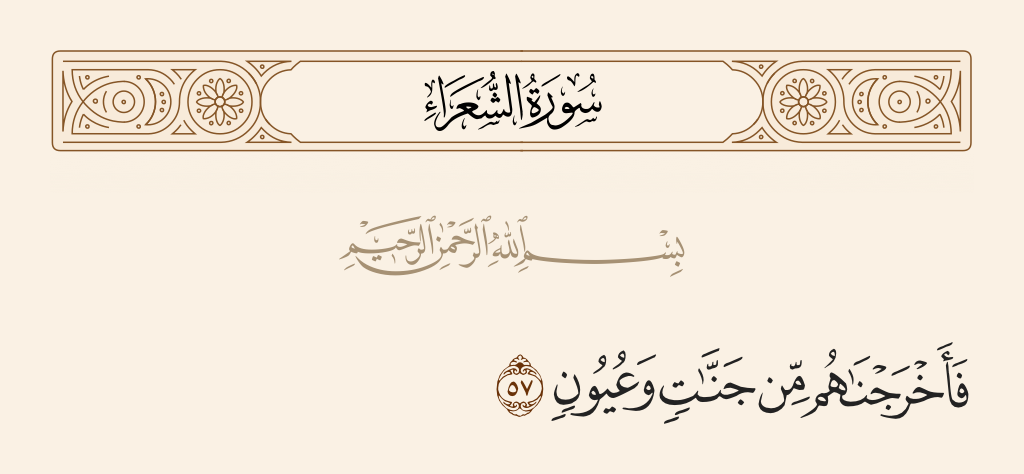 سُورَةُ الشُّعَرَاءِ
بِسْمِ ٱللَّهِ ٱلرَّحْمَٰنِ ٱلرَّحِيمِ
فَأَخْرَجْنَٰهُم مِّن جَنَّٰتٍ وَعُيُونٍ ٥٧